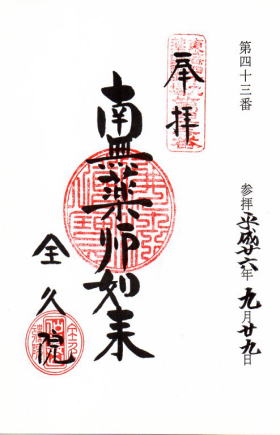 第四十三番
参拝平成廿六年九月廿九日
奉拝
南無薬師如来
全久院